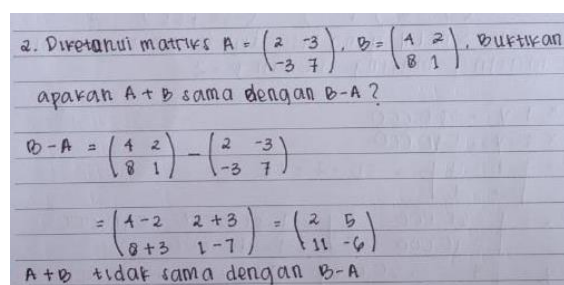 2. Diketahui matriks A = (2 -3 / -3 7), B = (4 2 / 8 1), Buktikan
apakah A + B sama dengan B-A?
B-A = (4 2 / 8 1) - (2 -3 / -3 7)
= (4-2 2+3 / 8+3 1-7) = (2 5 / 11 -6)
A+B tidak sama dengan B-A